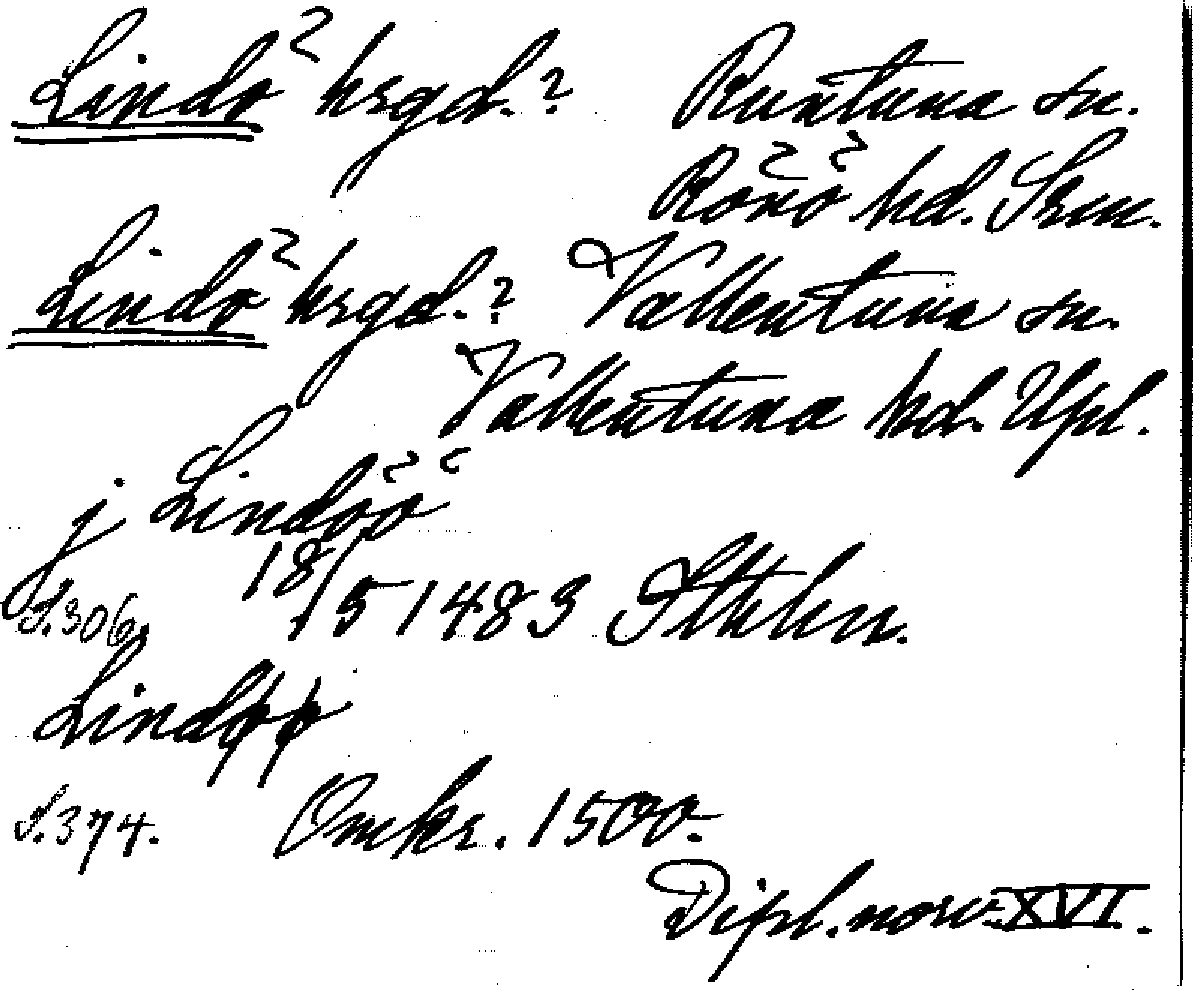 Lindö hrgd.? Runtuna sn.
Rönö hd. Srm.
Lindö hrgd.? Vallentuna sn.
Vallentuna hd. Upl.
j Lindöö
S.306. 18/5 1483 Sthlm.
Lindøø
S.374. Omkr. 1500.
Dipl. norv. XVI.